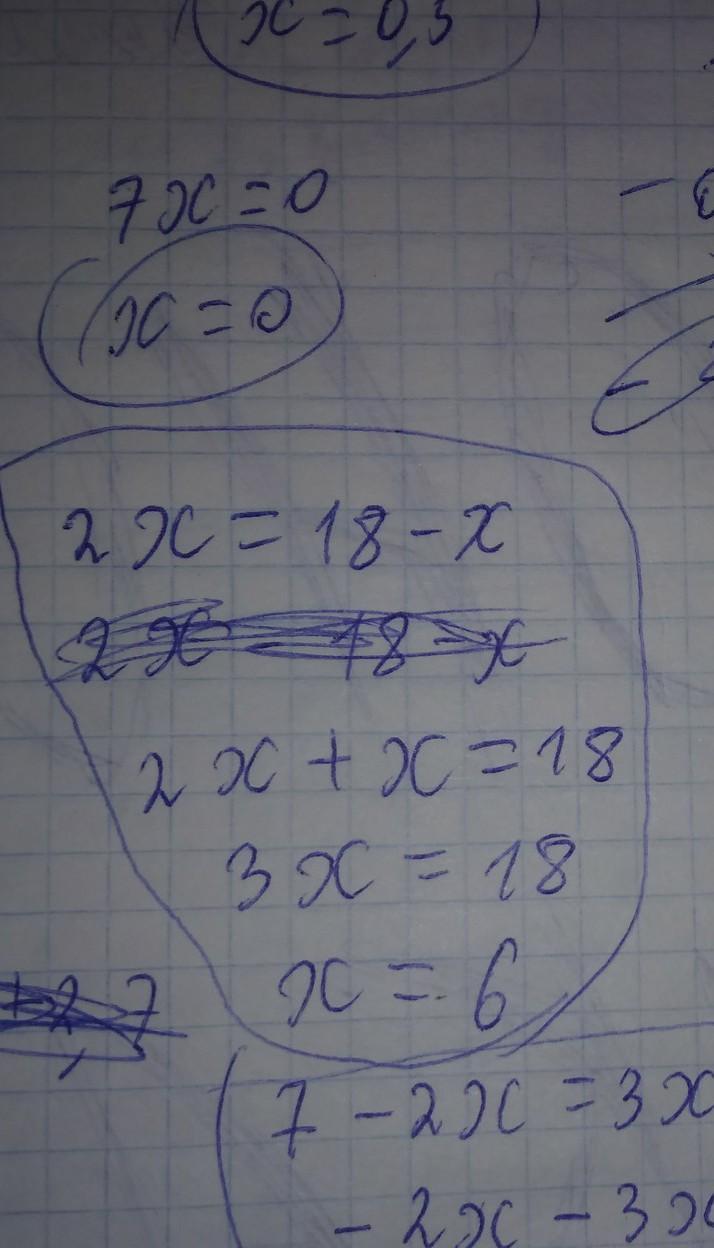 x = 0,3
7x = 0
x = 0
2x = 18 - x
2x 18 - x
2x + x = 18
3x = 18
x = 6
7 - 2x = 3x
- 2x - 3x